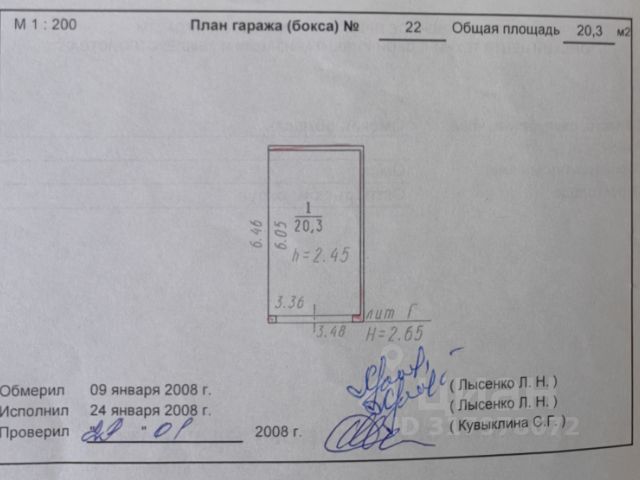 М 1 : 200 План гаража (бокса) № 22 Общая площадь 20,3 м2
1
20,3
6.46 6.05
h=2.45
3.36
лит Г
3.48 H=2.65
Обмерил 09 января 2008 г. ( Лысенко Л. Н. )
Исполнил 24 января 2008 г. ( Лысенко Л. Н. )
Проверил "29" 01 2008 г. ( Кувыклина С.Г. )